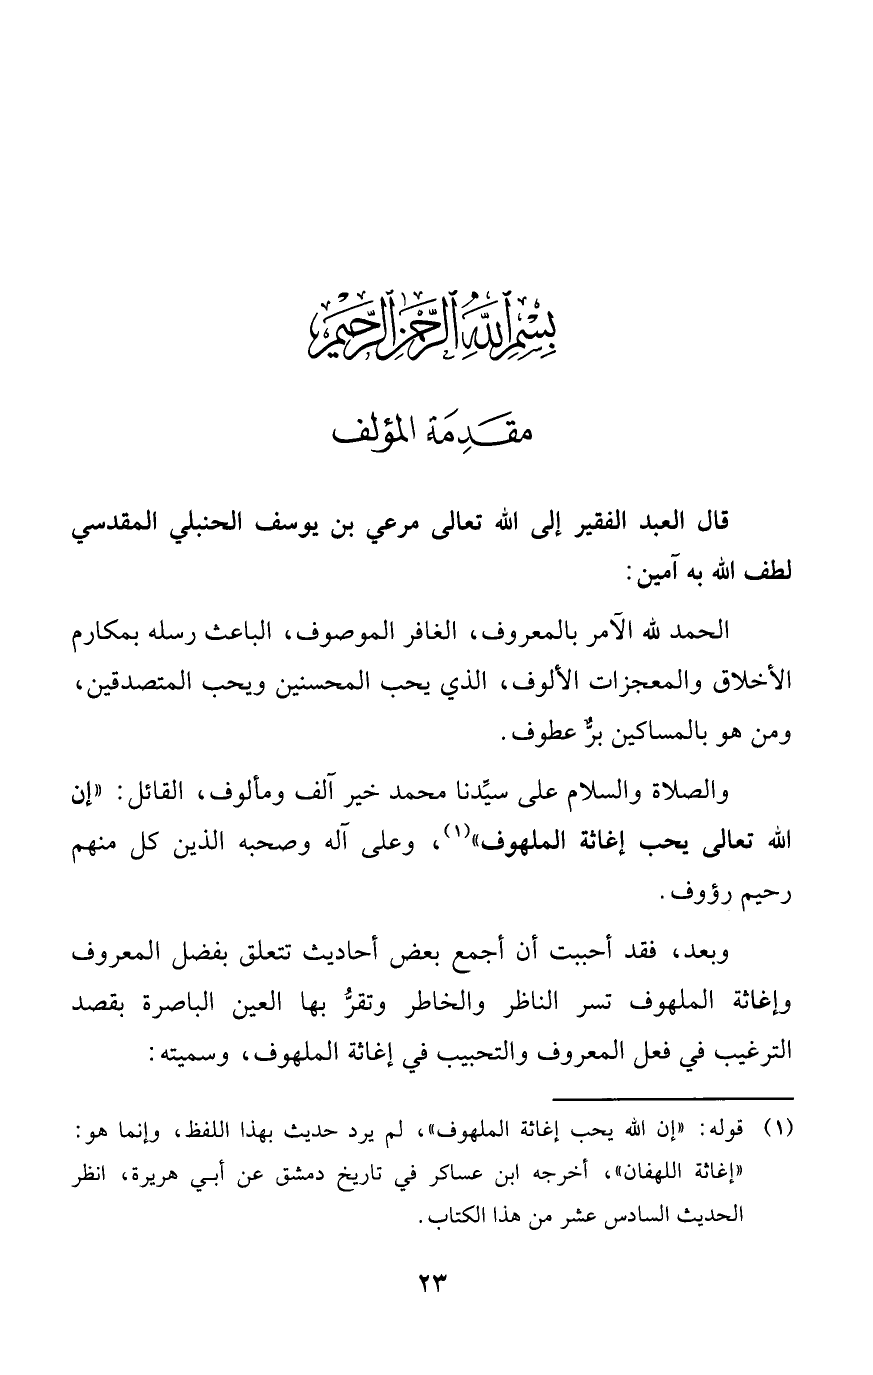 بِسْمِ ٱللَّهِ ٱلرَّحْمَٰنِ ٱلرَّحِيمِ
مقَدِمَة المؤلف
قال العبد الفقير إلى الله تعالى مرعي بن يوسف الحنبلي المقدسي
لطف الله به آمين:
الحمد لله الآمر بالمعروف، الغافر الموصوف، الباعث رسله بمكارم
الأخلاق والمعجزات الألوف، الذي يحب المحسنين ويحب المتصدقين،
ومن هو بالمساكين برٌّ عطوف.
والصلاة والسلام على سيِّدنا محمد خير آلف ومألوف، القائل: «إن
الله تعالى يحب إغاثة الملهوف»(١)، وعلى آله وصحبه الذين كل منهم
رحيم رؤوف.
وبعد، فقد أحببت أن أجمع بعض أحاديث تتعلق بفضل المعروف
وإغاثة الملهوف تسر الناظر والخاطر وتقرُّ بها العين الباصرة بقصد
الترغيب في فعل المعروف والتحبيب في إغاثة الملهوف، وسميته:
(١) قوله: «إن الله يحب إغاثة الملهوف»، لم يرد حديث بهذا اللفظ، وإنما هو:
«إغاثة اللهفان»، أخرجه ابن عساكر في تاريخ دمشق عن أبي هريرة، انظر
الحديث السادس عشر من هذا الكتاب.
٢٣